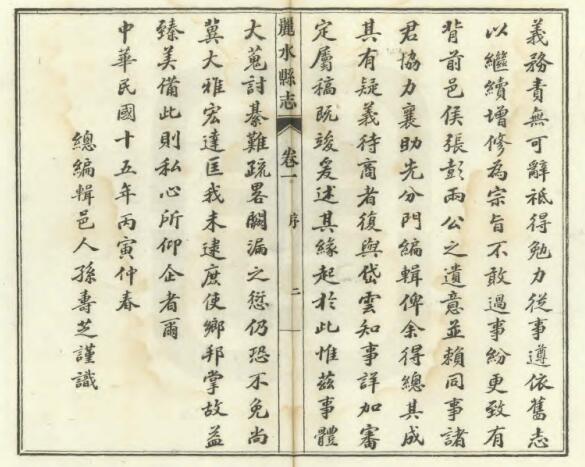 義務責無可辭祗得勉力從事遵依舊志
以繼續增修為宗旨不敢過事紛更致有
背前邑侯張彭兩公之遺意並賴同事諸
君協力襄助先分門編輯俾余得總其成
其有疑義待商者復與岱雲知事詳加審
定屬稿既竣爰述其緣起於此惟茲事體
麗水縣志
卷一
序
二
大蒐討綦難疏畧闕漏之愆仍恐不免尚
冀大雅宏達匡我未逮庶使鄉邦掌故益
臻美備此則私心所仰企者爾
中華民國十五年丙寅仲春
總編輯邑人孫壽芝謹識